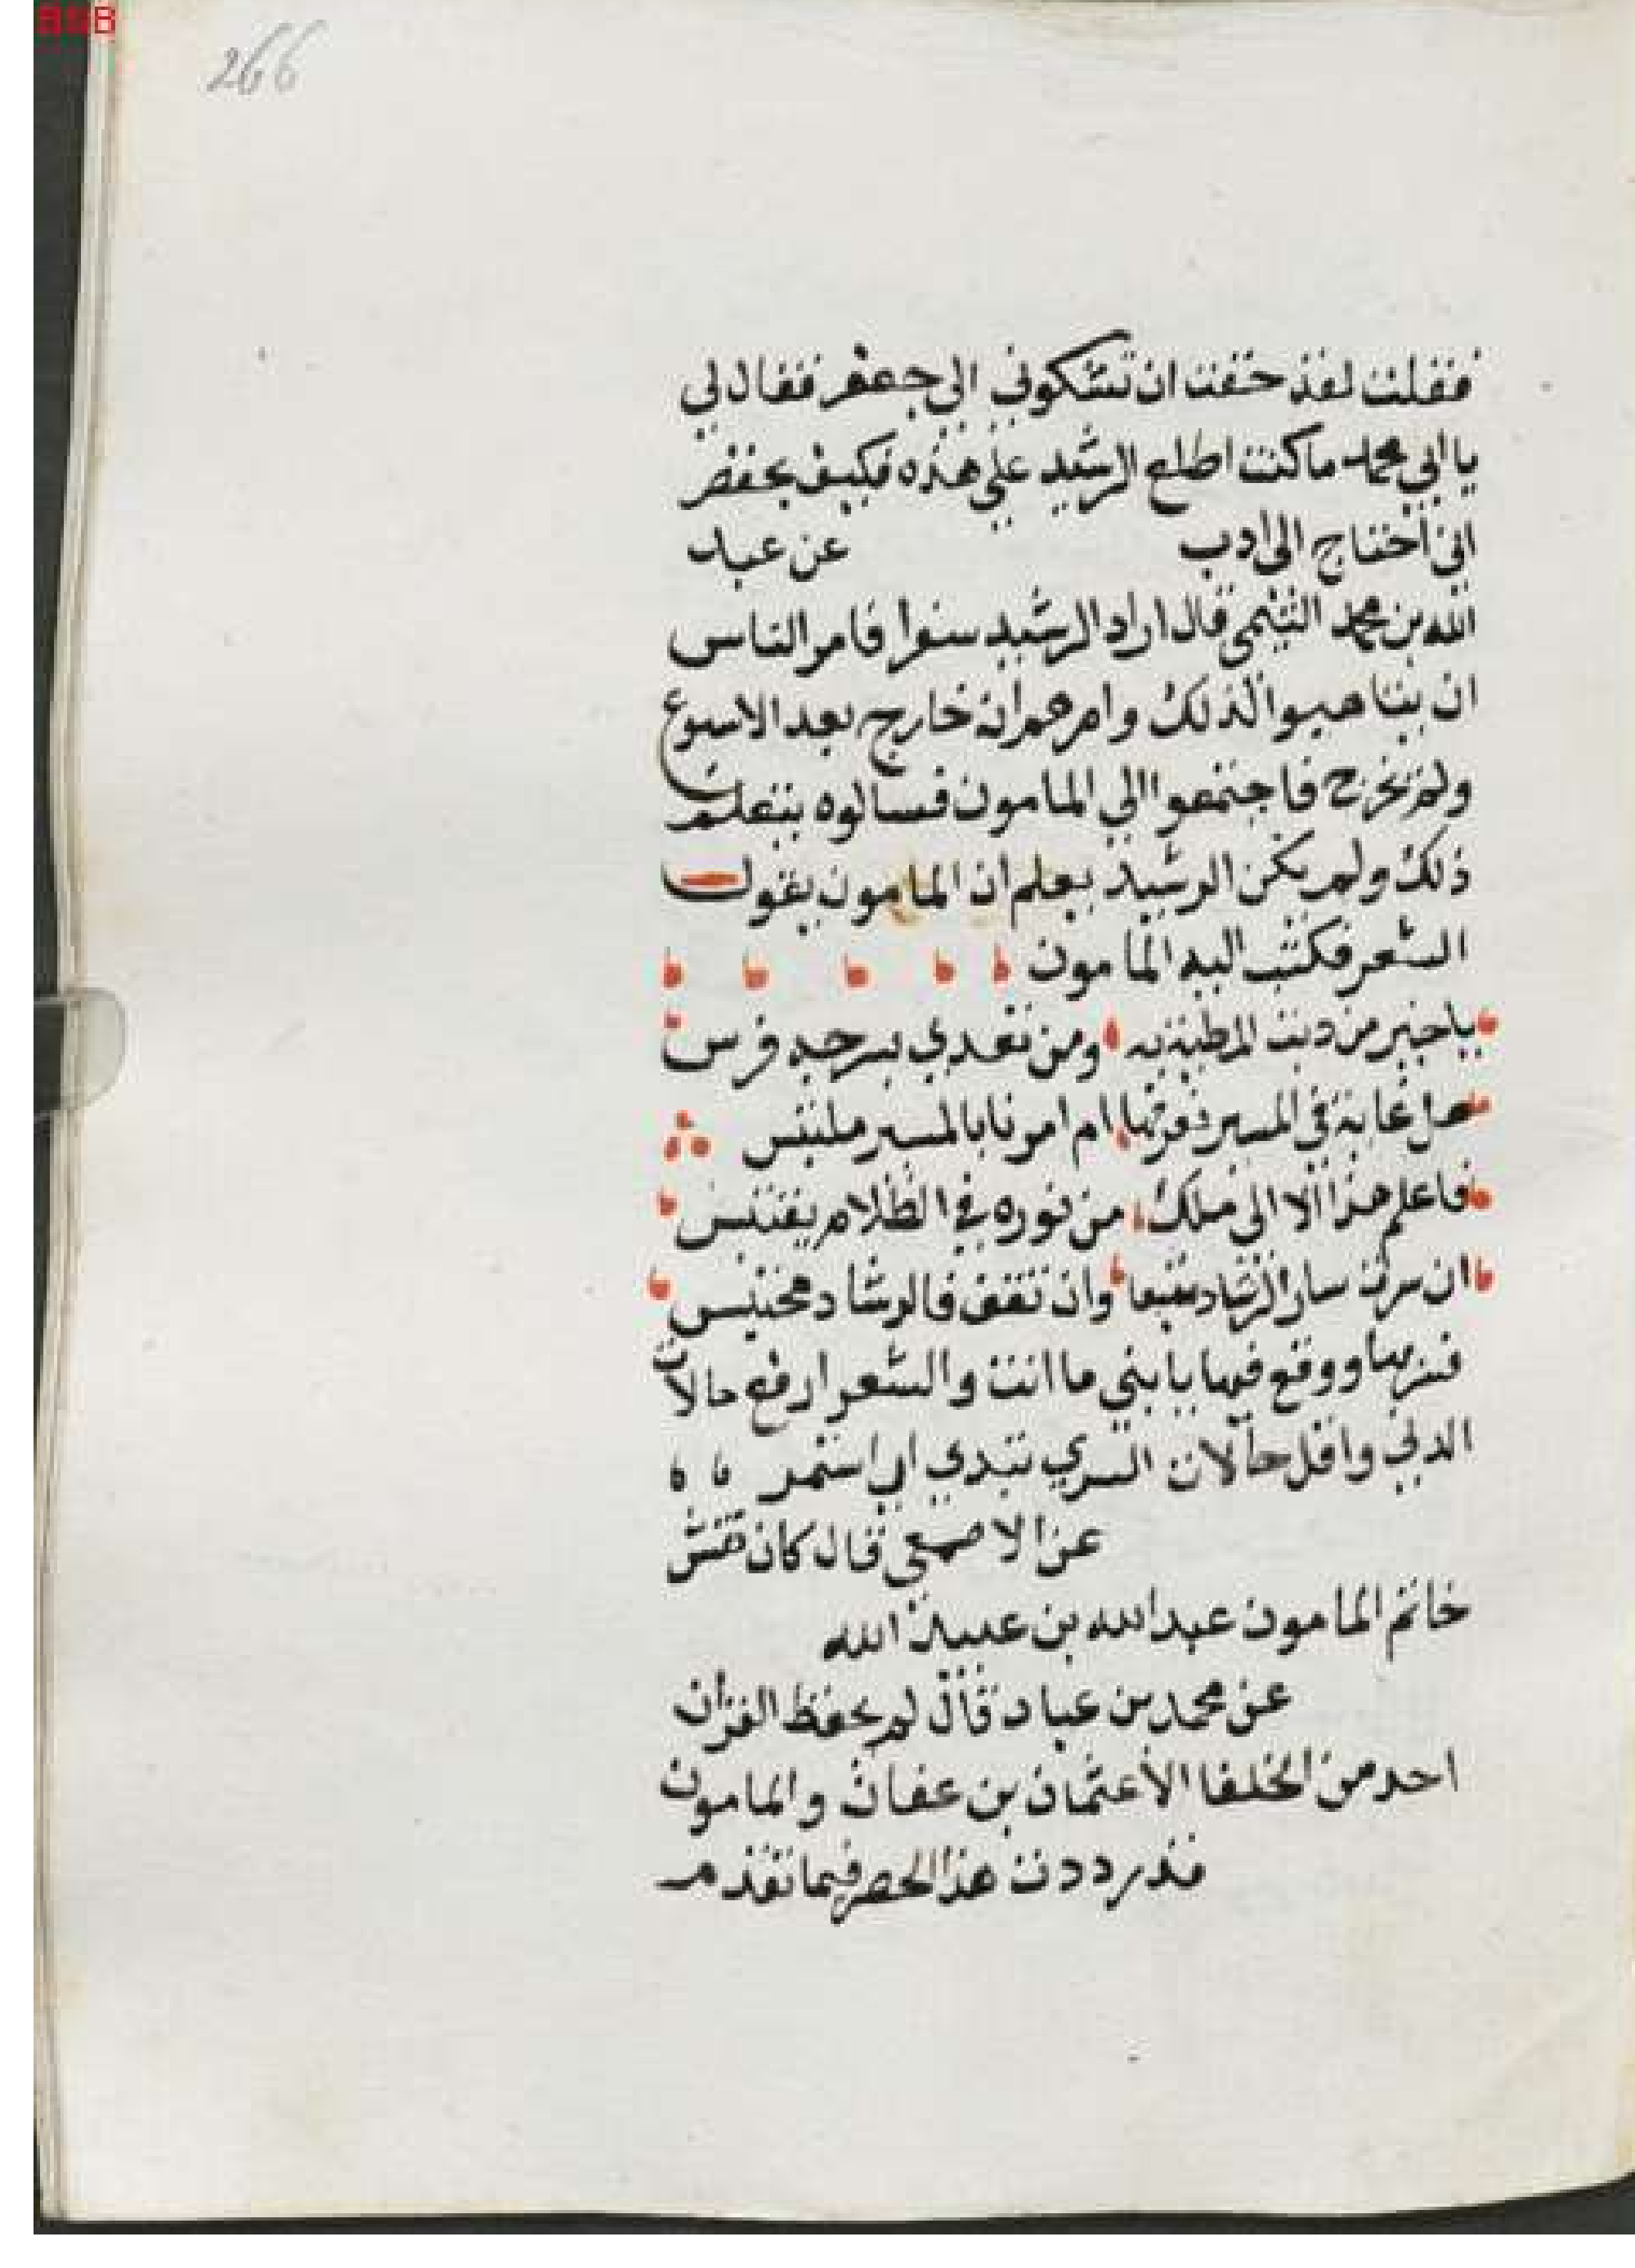 266
فقلت لقد خفت ان تشكوني الى جعفر فقال لي
يا ابي محمد ما كنت اطلع الرشيد على هذه فكيف بجعفر
اني احتاج الى ادب عن عبد
الله بن محمد التيمي قال اراد الرشيد سفرا فامر الناس
ان يتاهبوا لذلك وامرهم انه خارج بعد الاسبوع
ولم يخرج فاجتمعوا الى المامون فسالوه يتعلم
ذلك ولم يكن الرشيد يعلم ان المامون يقول
الشعر فكتب اليه المامون
يا خير من دبت المطي به ومن تقدي بسرجه فرس
هل غاية في المسير نعرفها ام امرنا بالمسير ملتبس
فاعلم هذا الا الى ملك من نوره في الظلام يقتبس
ان سرت سار الرشاد متبعا وان تقف فالرشاد محتبس
فقراها ووقع فيها يا بني ما انت والشعر ارفع حالات
الدني واقل حالات السري
عن الاصمعي قال كان نقش
خاتم المامون عبد الله بن عبيد الله
عن محمد بن عباد قال لم يحفظ القران
احد من الخلفا الا عثمان بن عفان والمامون
قد رددت هذا الحصر فيما تقدم